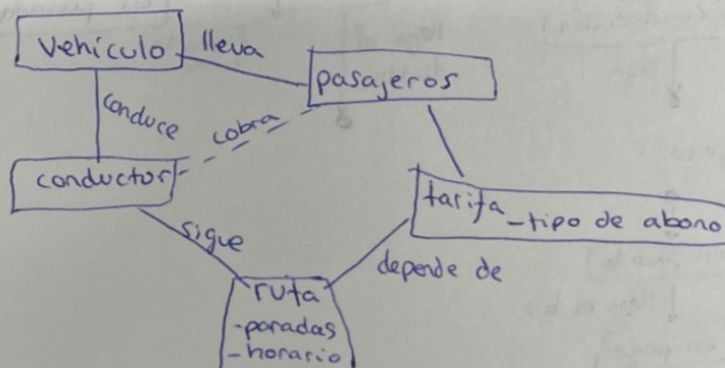 vehículo
lleva
pasajeros
conduce
cobra
conductor
tarifa
-tipo de abono
sigue
depende de
ruta
-paradas
-horario